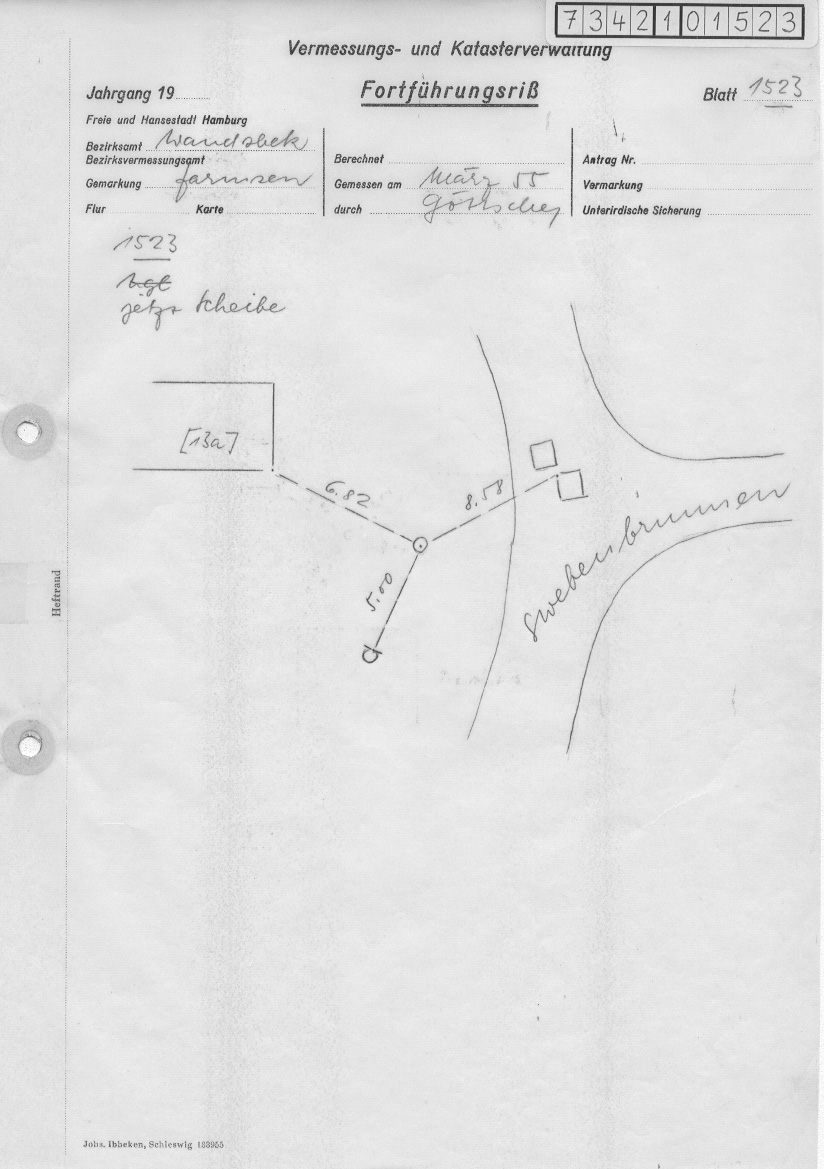 7342101523
Vermessungs- und Katasterverwaltung
Jahrgang 19
Fortführungsriß
Blatt 1523
Freie und Hansestadt Hamburg
Bezirksamt Wandsbek
Bezirksvermessungsamt
Gemarkung Farmsen
Flur Karte
Berechnet
Gemessen am März 55
durch
Antrag Nr.
Vermarkung
Unterirdische Sicherung
1523
jetzt Scheibe
[13a]
6.82
8.58
5.00
Swebenbrunnen
Heftrand
Johs. Ibbeken, Schleswig 188955